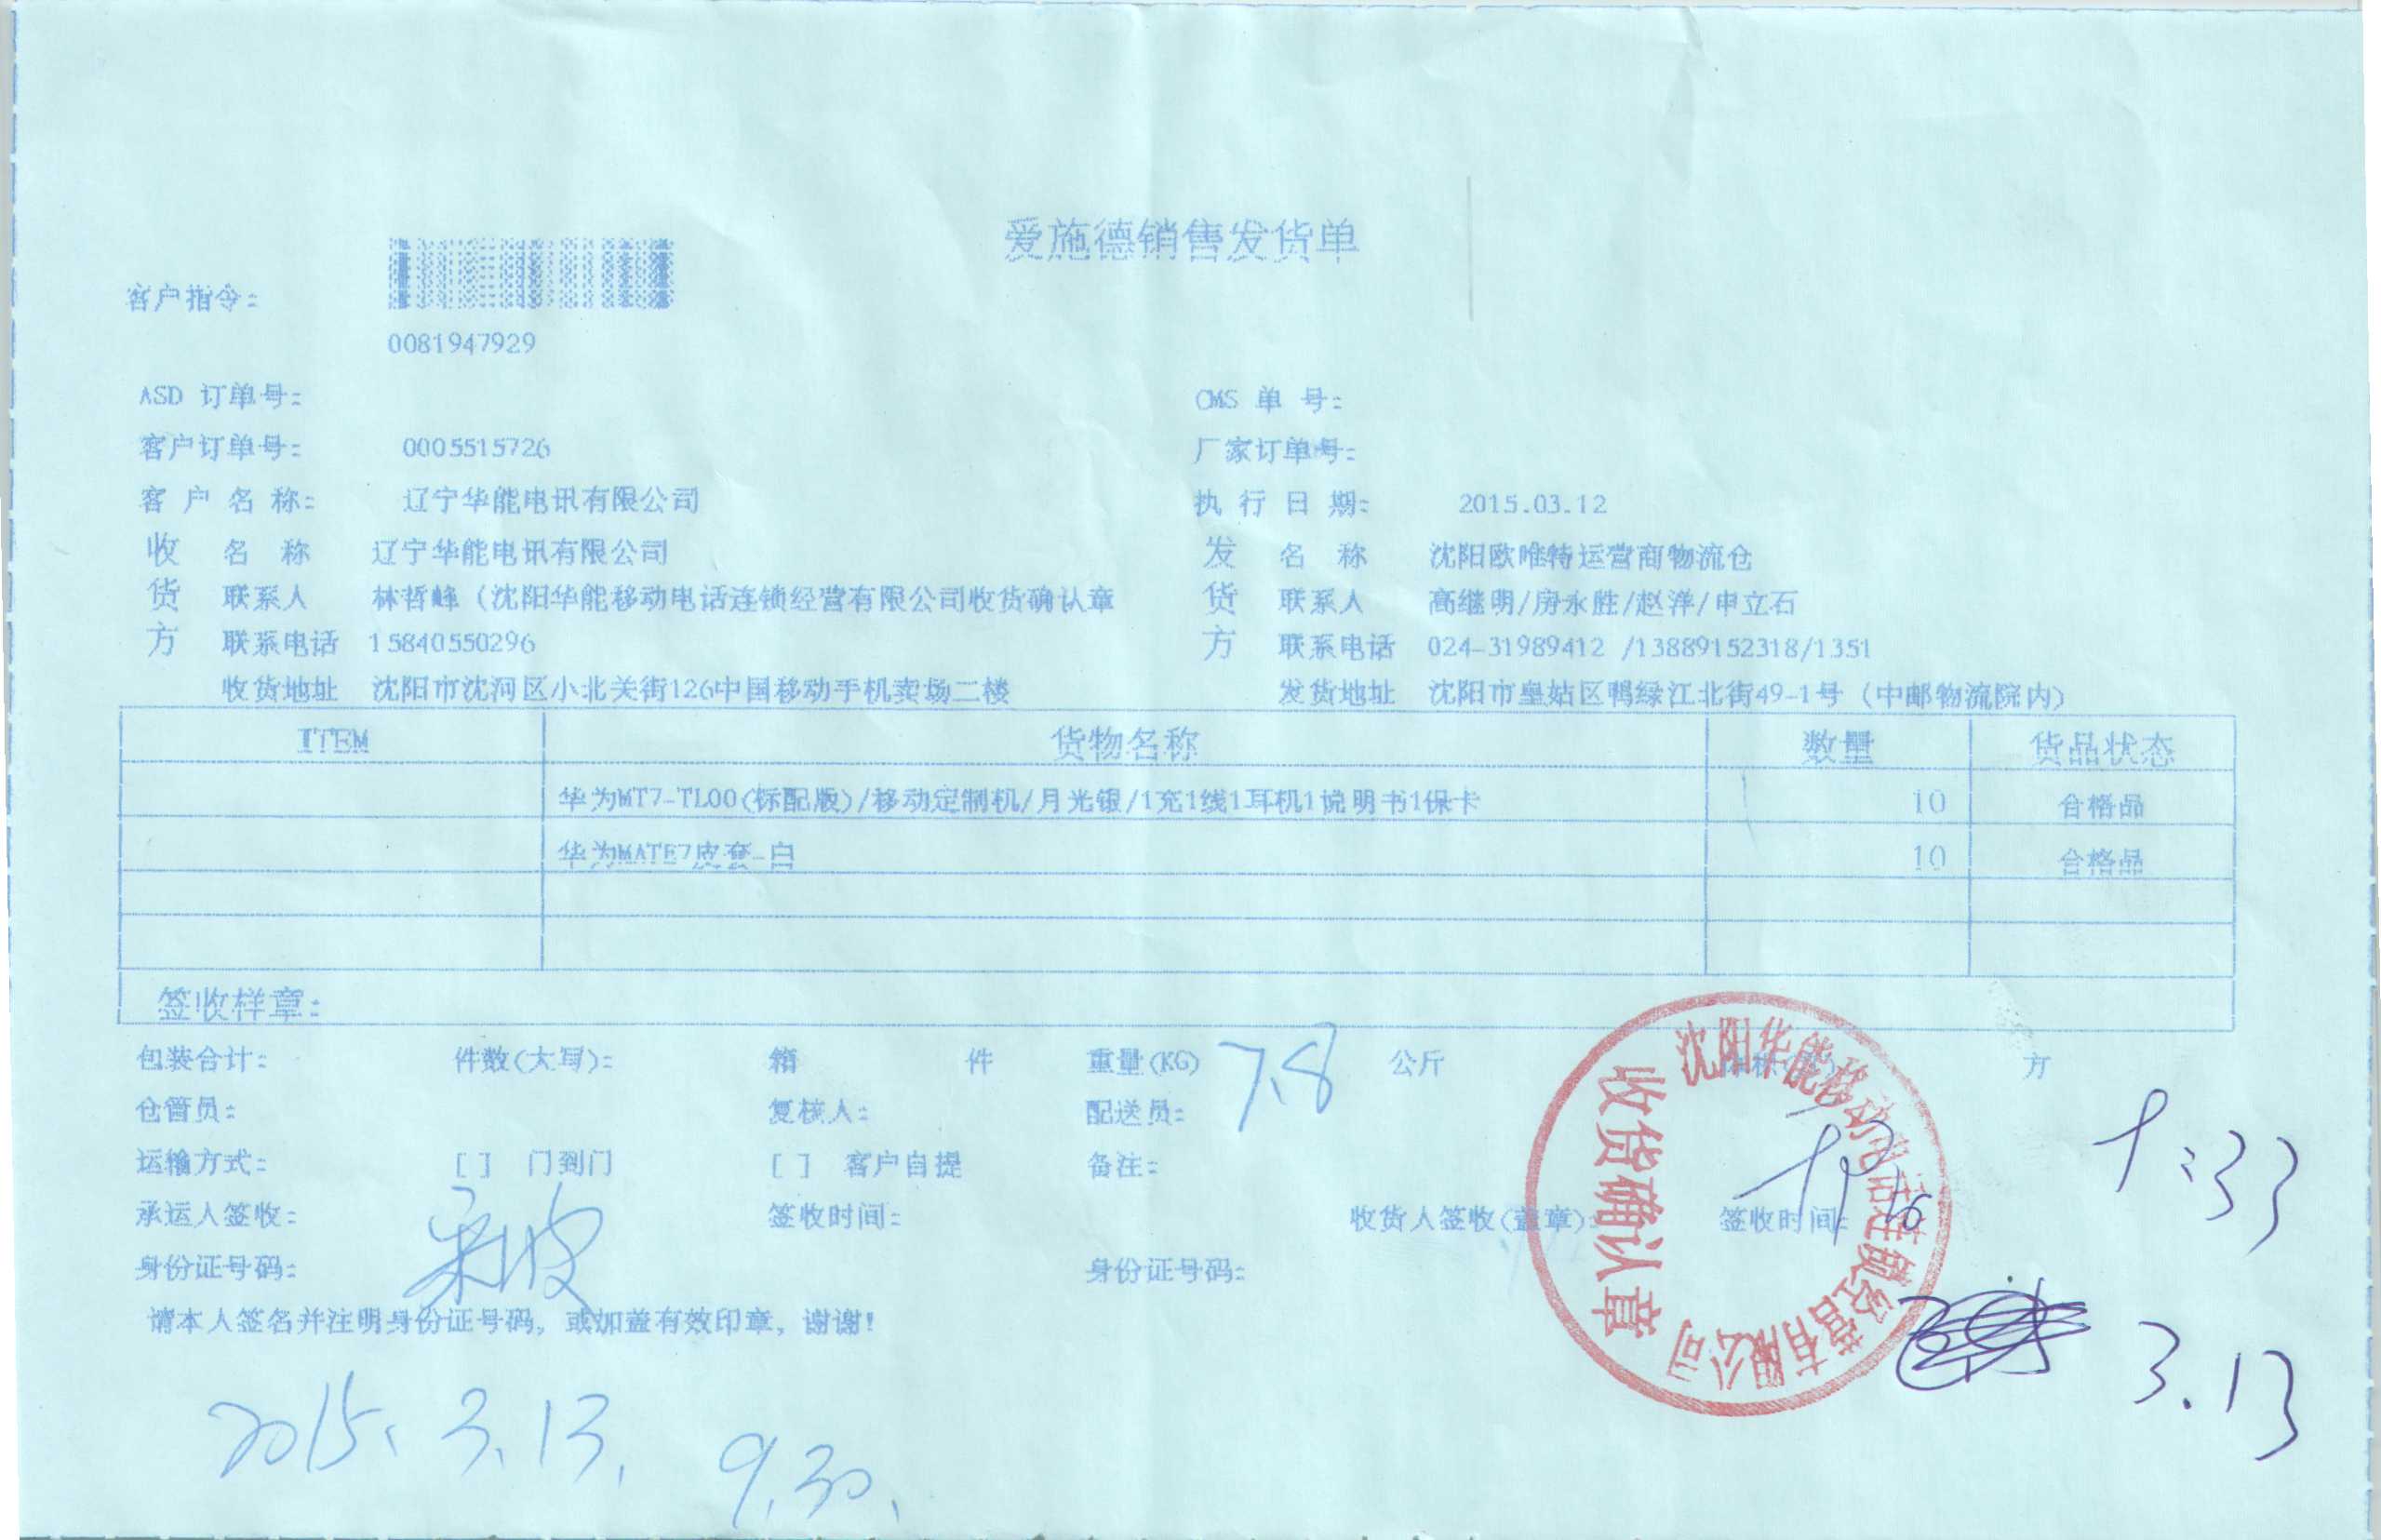 爱施德销售发货单
客户指令:
0081947929
ASD 订单号: CMS 单 号:
客户订单号: 0005515726 厂家订单号:
客 户 名 称: 辽宁华能电讯有限公司 执 行 日 期: 2015.03.12
收 名 称 辽宁华能电讯有限公司 发 名 称 沈阳欧唯特运营商物流仓
货 联系人 林哲峰(沈阳华能移动电话连锁经营有限公司收货确认章 货 联系人 高继明/房永胜/赵洋/申立石
方 联系电话 15840550296 方 联系电话 024-31989412 /13889152318/1351
收货地址 沈阳市沈河区小北关街126中国移动手机卖场二楼 发货地址 沈阳市皇姑区鸭绿江北街49-1号(中邮物流院内)
ITEM 货物名称 数量 货品状态
华为MT7-TL00(标配版)/移动定制机/月光银/1充1线1耳机1说明书1保卡 10 合格品
华为MATE7皮套-白 10 合格品
签收样章:
包装合计: 件数(大写): 箱 件 重量(KG) 7.8 公斤 方
仓管员: 复核人: 配送员:
运输方式: [ ] 门到门 [ ] 客户自提 备注:
承运人签收: 签收时间: 收货人签收(盖章): 签收时间:
身份证号码: 身份证号码:
请本人签名并注明身份证号码，或加盖有效印章，谢谢!
沈阳华能移动电话连锁经营有限公司
收货确认章
3.13
2015.3.13. 9.30.